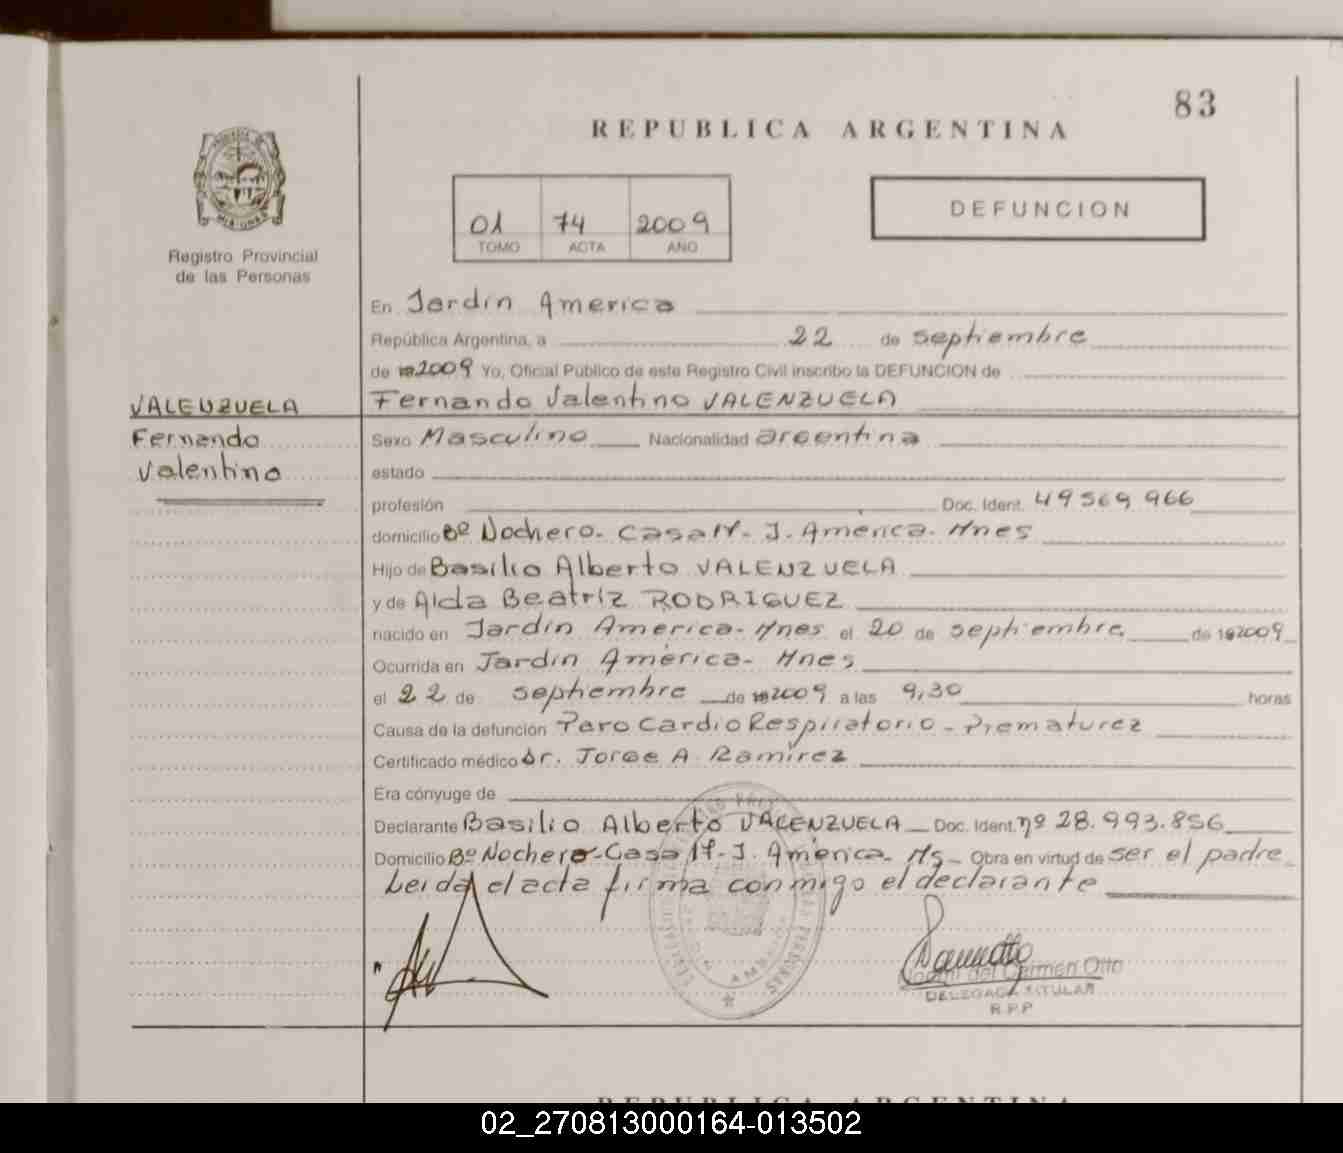 83
REPUBLICA ARGENTINA
01 74 2009
TOMO ACTA AÑO
DEFUNCION
Registro Provincial
de las Personas
En Jardín America
República Argentina, a 22 de septiembre
de 192009 Yo, Oficial Público de este Registro Civil inscribo la DEFUNCION de
VALENZUELA
Fernando
Valentino
Fernando Valentino VALENZUELA
Sexo Masculino Nacionalidad argentina
estado
profesión Doc. Ident. 49569966
domicilio Bº Nochero. Casa 14. J. America. Mnes
Hijo de Basilio Alberto VALENZUELA
y de Alda Beatriz RODRIGUEZ
nacido en Jardín America- Mnes el 20 de septiembre de 192009
Ocurrida en Jardín América- Mnes
el 22 de septiembre de 192009 a las 9,30 horas
Causa de la defunción Paro CardioRespiratorio - Prematurez
Certificado médico Dr. Jorge A. Ramírez
Era cónyuge de
Declarante Basilio Alberto VALENZUELA Doc. Ident. nº 28.993.856
Domicilio Bº Nochero-Casa 14-J. América- Ms- Obra en virtud de ser el padre
Leida el acta firma conmigo el declarante
del Carmen Otto
DELEGADA TITULAR
R.P.P
REPUBLICA ARGENTINA
02_270813000164-013502